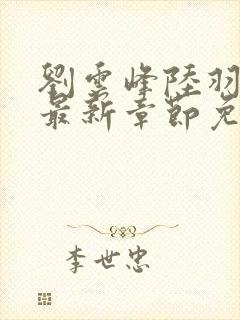 劉雲峰陸羽
最新章節免
李世忠